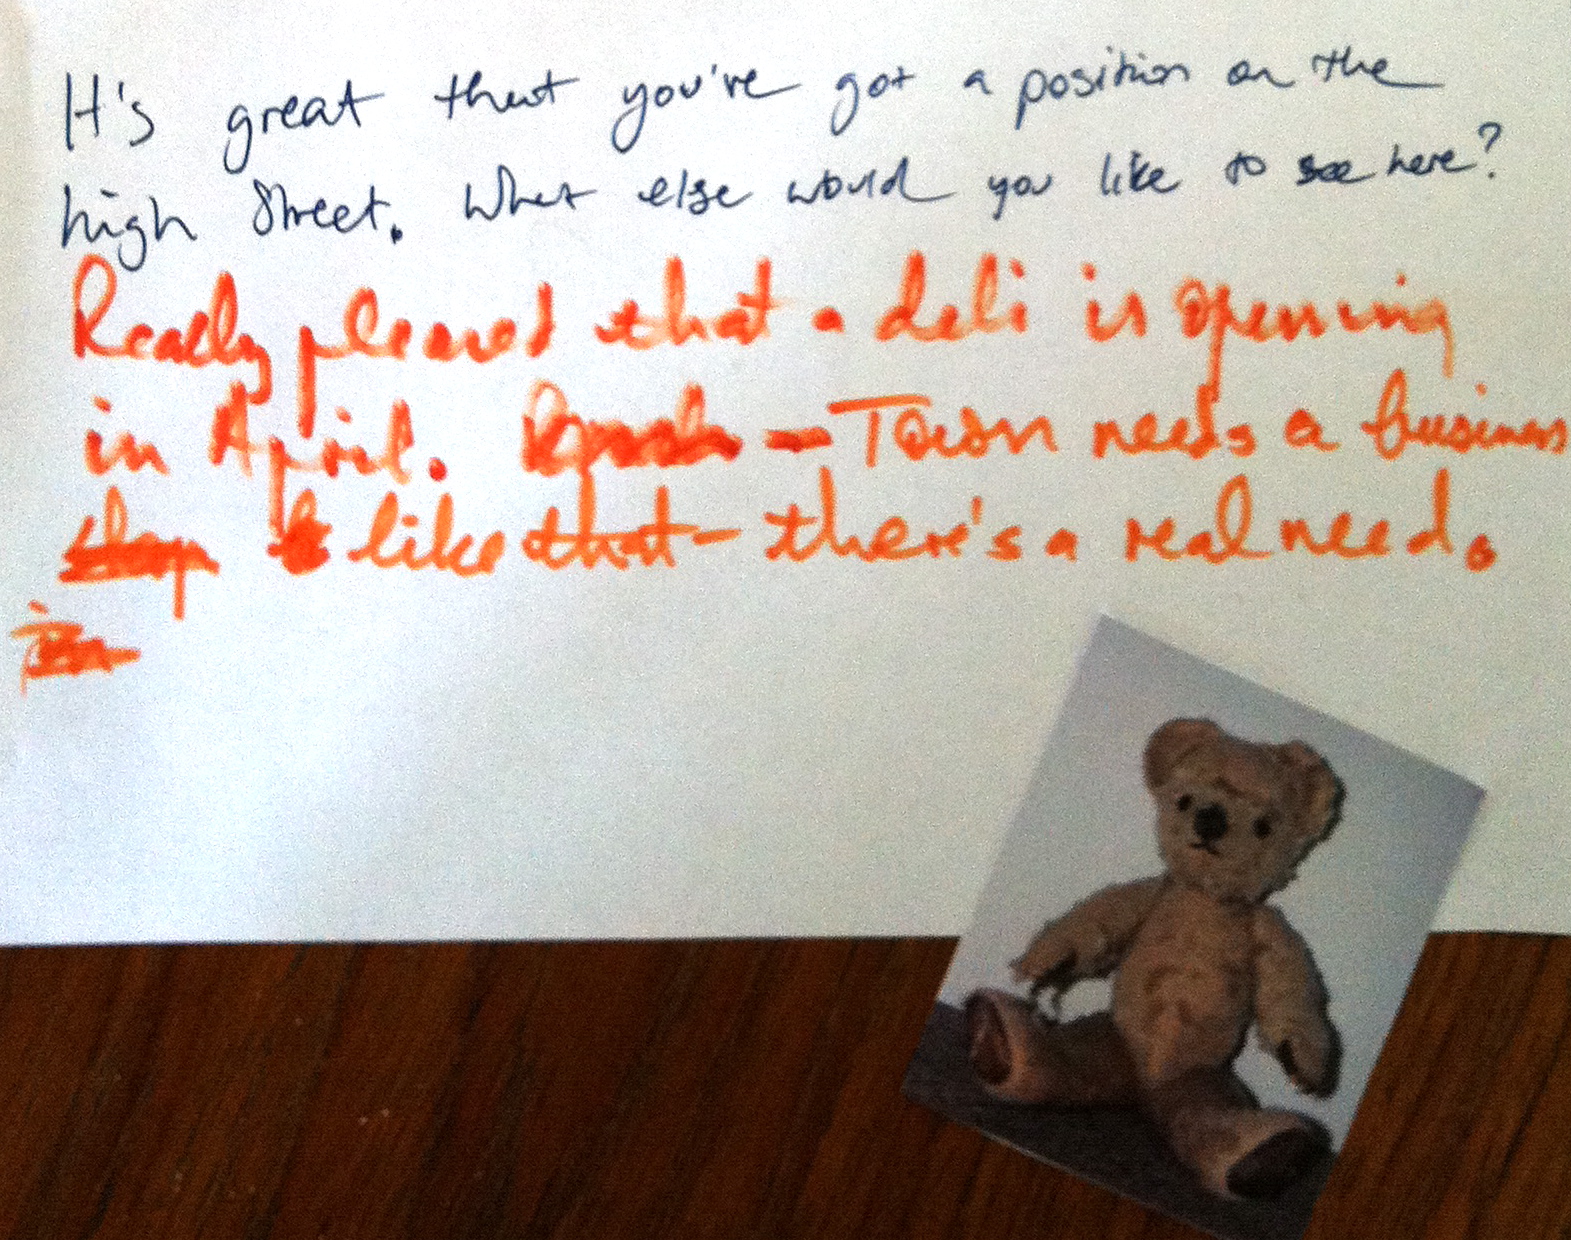 It's great that you've got a position on the
high Street. What else would you like to see here?
Really pleased that a deli is opening
in April. - Town needs a business
shop like that - there's a real need.